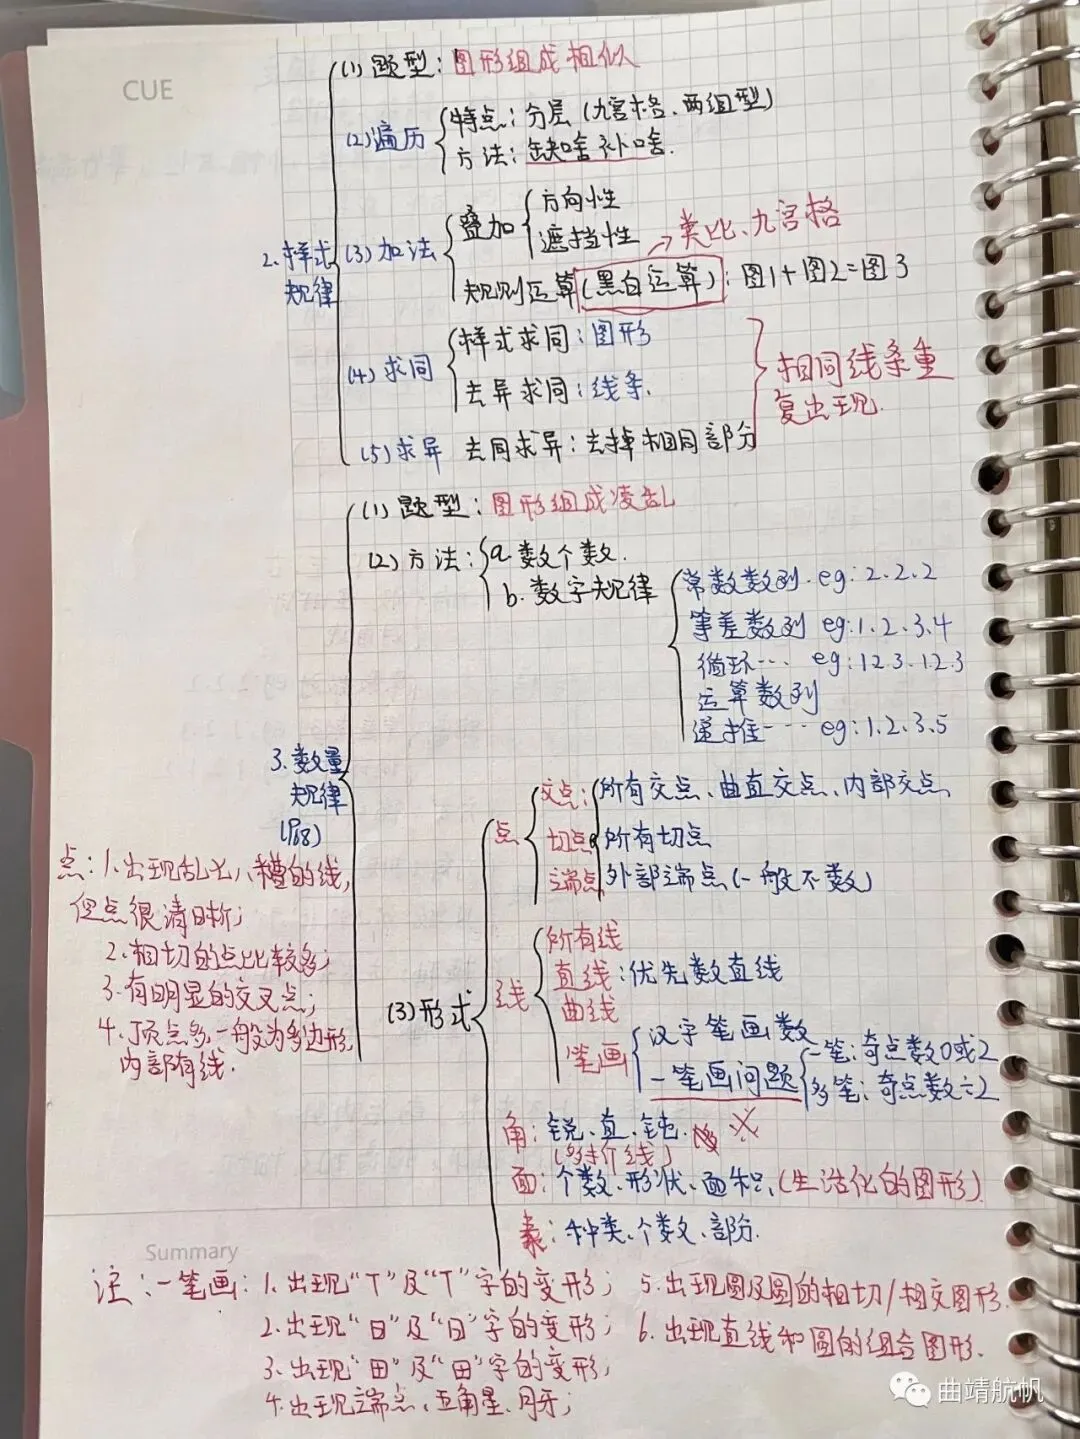 CUE
2.样式规律
(1)题型：图形组成相似
(2)遍历
特点：分层(九宫格、两组型)
方法：缺啥补啥.
(3)加法
叠加
方向性
遮挡性
规则运算(黑白运算)：图1+图2=图3
→类比、九宫格
(4)求同
样式求同：图形
去异求同：线条.
(5)求异 去同求异：去掉相同部分
相同线条重
复出现.
3.数量
规律
(1)题型：图形组成凌乱
(2)方法：
a.数个数.
b.数字规律
常数数列.eg：2.2.2
等差数列 eg:1.2.3.4
循环… eg:123.123
运算数列
递推…… eg:1.2.3.5
(3)形式
点
交点：所有交点、曲直交点、内部交点
切点 所有切点
端点 外部端点(一般不数)
线
所有线
直线：优先数直线
曲线
笔画
汉字笔画数
一笔画问题
一笔：奇点数0或2
多笔：奇点数÷2
角：锐、直、钝.
(多折线)
面：个数、形状、面积、(生活化的图形)
素：种类、个数、部分.
点：1.出现乱七八糟的线,
但点很清晰；
2.相切的点比较多；
3.有明显的交叉点；
4.顶点多,一般为多边形,
内部有线.
Summary
注：一笔画：1.出现“T”及“T”字的变形；
2.出现“日”及“日”字的变形；
3.出现“田”及“田”字的变形；
4.出现端点、五角星、月牙；
5.出现圆及圆的相切/相交图形.
6.出现直线和圆的组合图形.
曲靖航帆